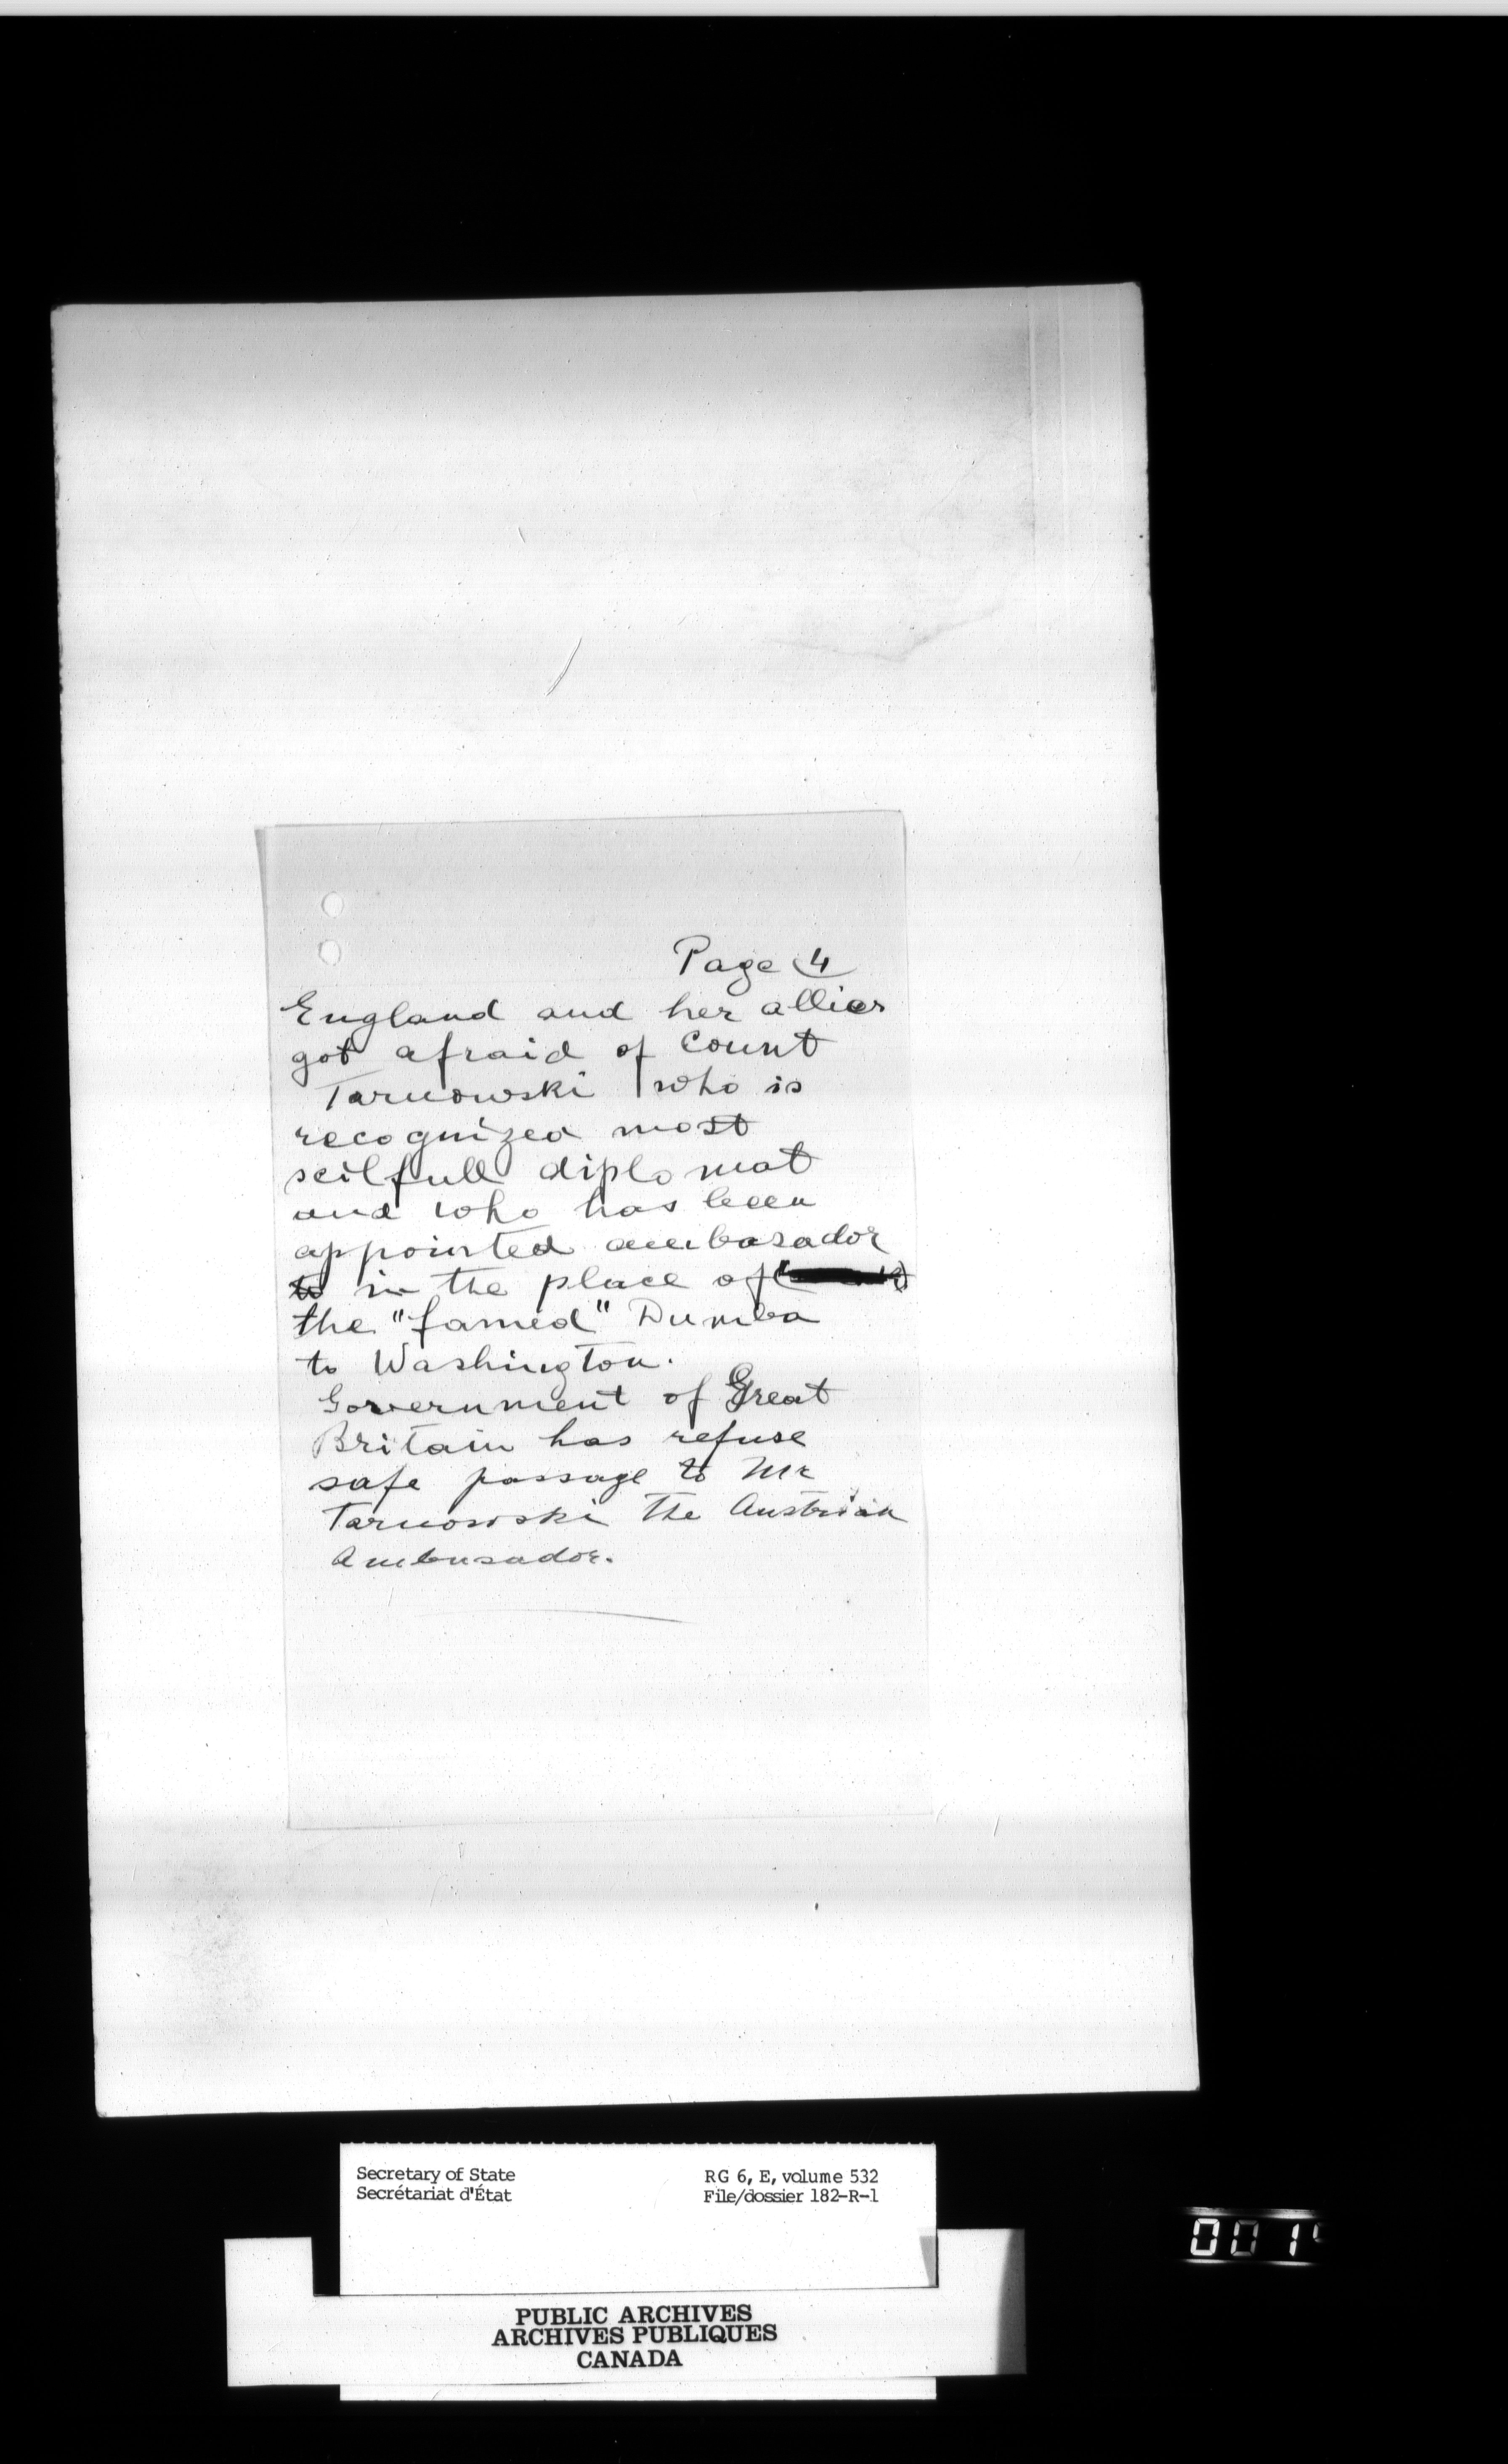 Page 4
England and her allies
got afraid of Count
Tarnowski who is
recognized most
scilfull diplomat
and who has been
appointed ambasador
to in the place of
the "famed" Dumba
to Washington.
Government of Great
Britain has refuse
safe passage to Mr
Tarnowski the Austrian
Ambasador.
Secretary of State
Secrétariat d'État
RG 6, E, volume 532
File/dossier 182-R-1
PUBLIC ARCHIVES
ARCHIVES PUBLIQUES
CANADA
001